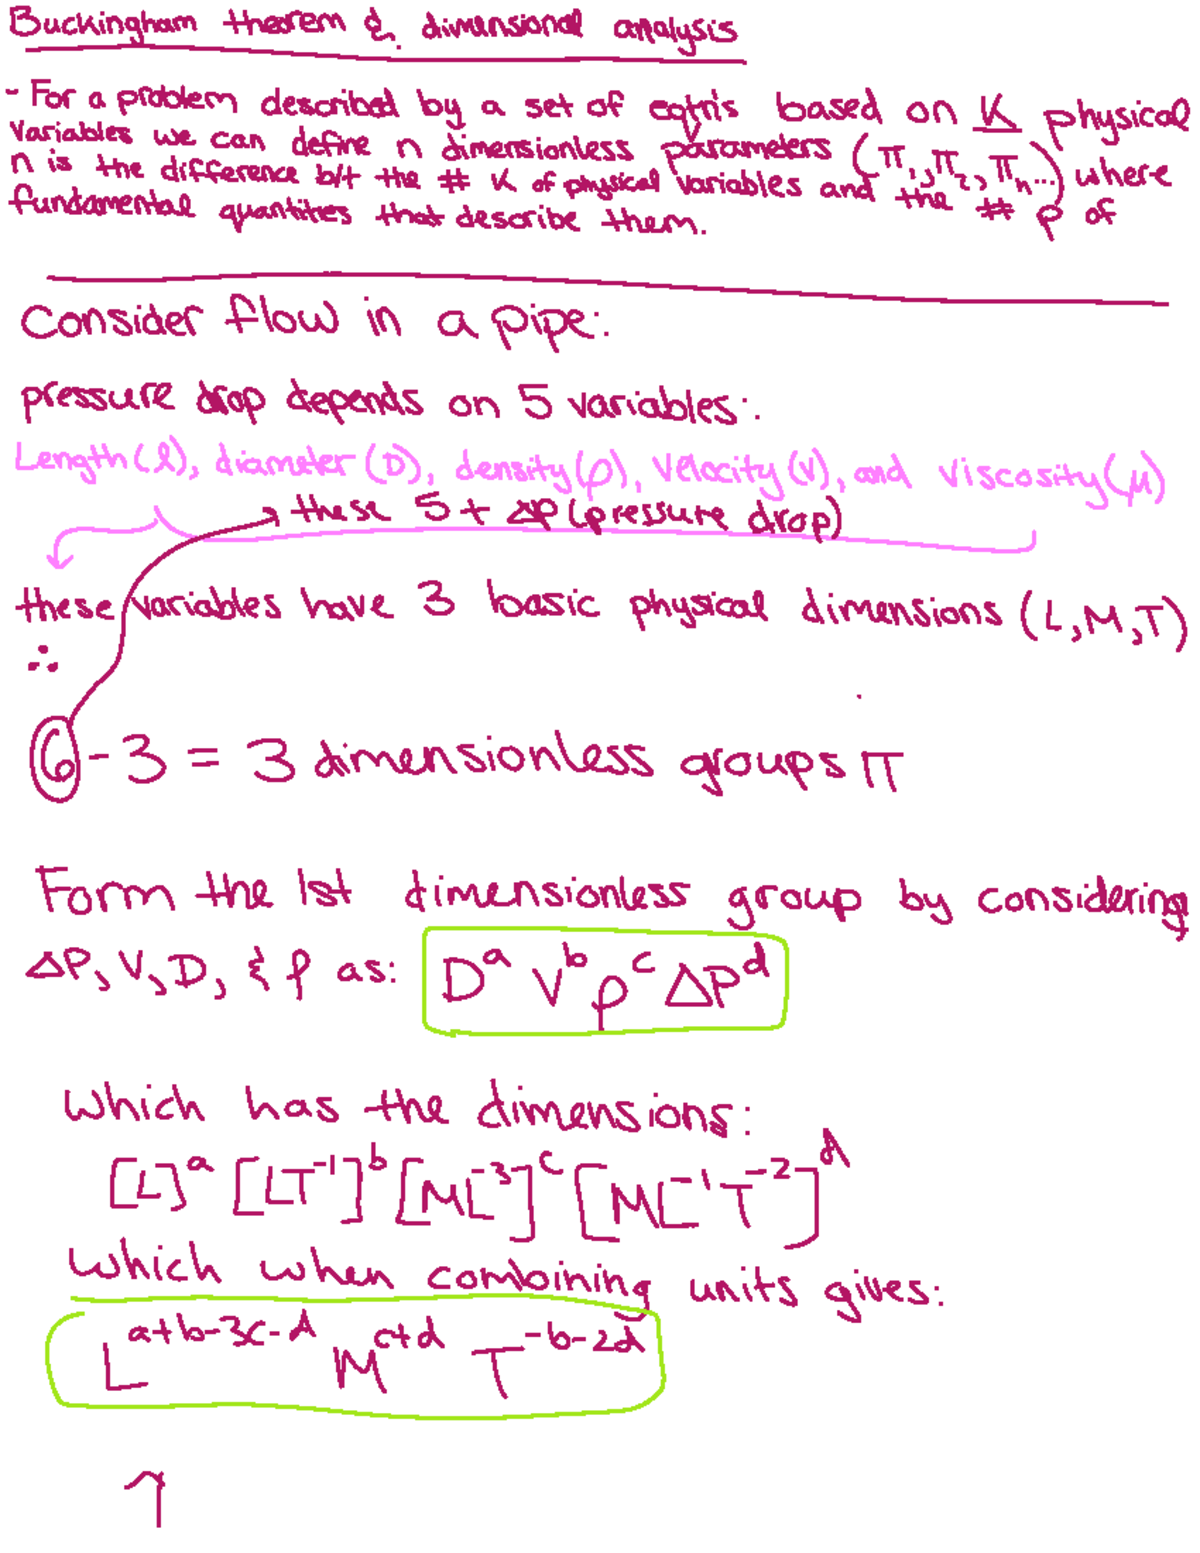 Buckingham theorem & dimensional analysis
- For a problem described by a set of eqtn's based on K physical
variables we can define n dimensionless parameters (π₁, π₂, πₙ...) where
n is the difference b/t the # K of physical variables and the # p of
fundamental quantities that describe them.
Consider flow in a pipe:
pressure drop depends on 5 variables:
Length (l), diameter (D), density (ρ), velocity (V), and viscosity (μ)
these 5 + ΔP (pressure drop)
these variables have 3 basic physical dimensions (L, M, T)
∴
6 - 3 = 3 dimensionless groups π
Form the 1st dimensionless group by considering
ΔP, V, D, & ρ as: Dᵃ Vᵇ ρᶜ ΔPᵈ
which has the dimensions:
[L]ᵃ [LT⁻¹]ᵇ [ML⁻³]ᶜ [ML⁻¹T⁻²]ᵈ
which when combining units gives:
L^(a+b-3c-d) M^(c+d) T^(-b-2d)